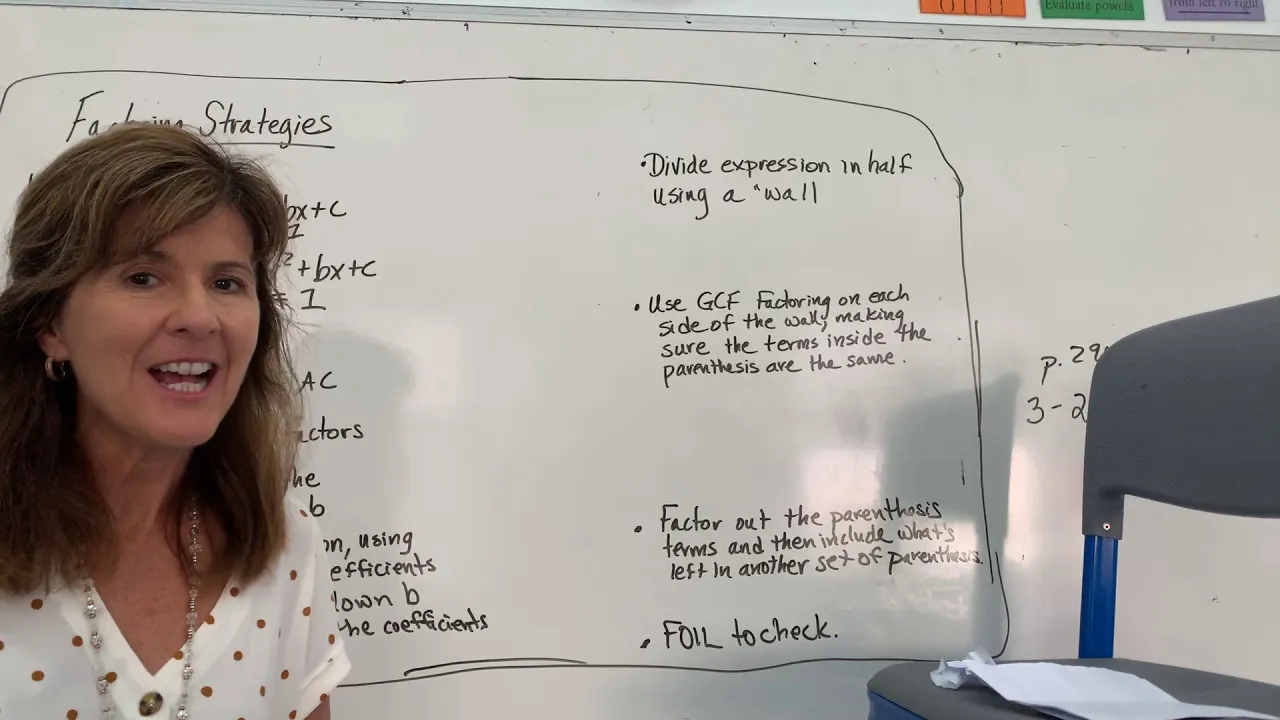 Evaluate powers
from left to right
Strategies
bx+c
1
² +bx+c
≠ 1
AC
factors
b
on, using
efficients
down b
the coefficients
•Divide expression in half
using a "wall
• Use GCF Factoring on each
side of the wall, making
sure the terms inside the
parenthesis are the same.
• Factor out the parenthesis
terms and then include what's
left in another set of parenthesis.
• FOIL to check.
p. 29
3-2